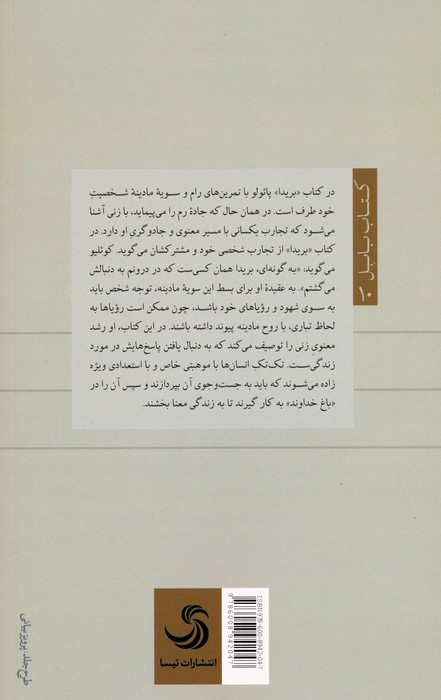 در کتاب «بریدا» پائولو با تمرین‌های رام و سویهٔ مادینهٔ شخصیتِ
خود طرف است. در همان حال که جادهٔ رم را می‌پیماید، با زنی آشنا
می‌شود که تجارب یکسانی با مسیر معنوی و جادوگریِ او دارد. در
کتاب «بریدا» از تجارب شخصی خود و مشترکشان می‌گوید. کوئلیو
می‌گوید: «به گونه‌ای، بریدا همان کسی‌ست که در درونم به دنبالش
می‌گشتم». به عقیدهٔ او برای بسط این سویهٔ مادینه، توجه شخص باید
به سوی شهود و رؤیاهای خود باشد، چون ممکن است رؤیاها به
لحاظ تباری، با روح مادینه پیوند داشته باشند. در این کتاب، او رشد
معنویِ زنی را توصیف می‌کند که به دنبال یافتن پاسخ‌هایش در مورد
زندگی‌ست. تک‌تکِ انسان‌ها با موهبتی خاص و با استعدادی ویژه
زاده می‌شوند که باید به جست‌وجوی آن بپردازند و سپس آن را در
«باغ خداوند» به کار گیرند تا به زندگی معنا بخشند.
کتاب بابل
انتشارات تیسا
ISBN978-600-8942-04-7
9786008942047
طرح جلد: پرویز بیانی